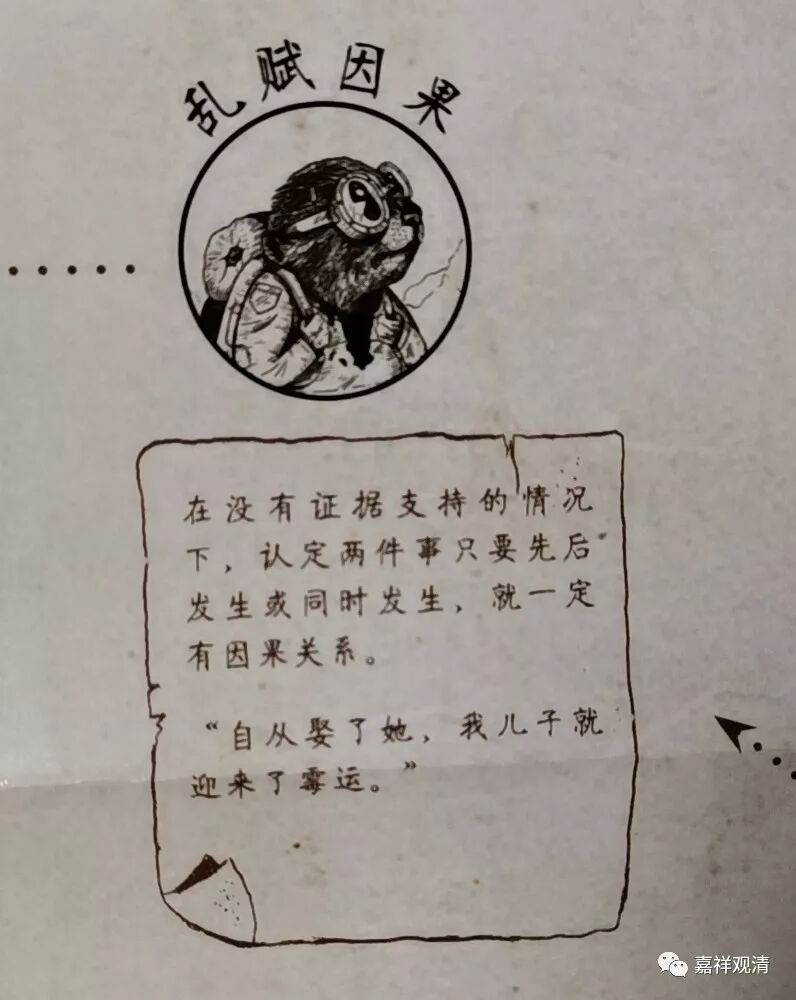 乱赋因果
在没有证据支持的情况
下，认定两件事只要先后
发生或同时发生，就一定
有因果关系。
“自从娶了她，我儿子就
迎来了霉运。”
嘉祥观清